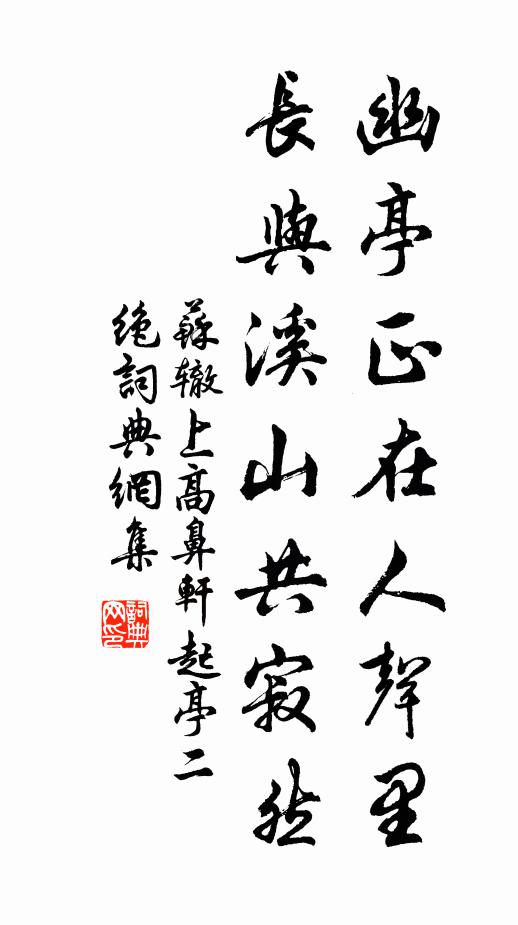 幽亭正在人聲里
長與溪山共寂然
蘇辙上高鼻軒起亭二
絶詞典網集
詞典网印